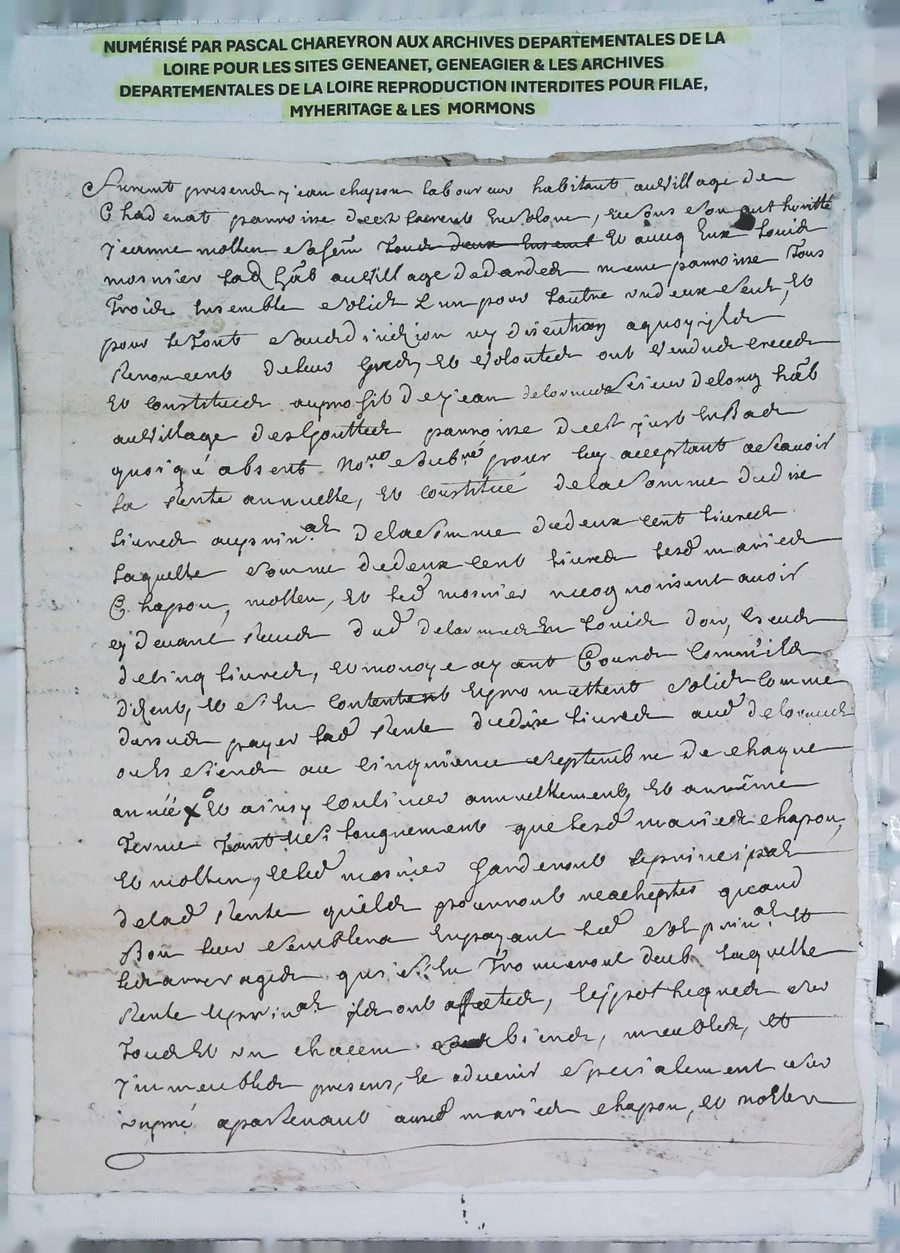 NUMÉRISÉ PAR PASCAL CHAREYRON AUX ARCHIVES DEPARTEMENTALES DE LA
LOIRE POUR LES SITES GENEANET, GENEAGIER & LES ARCHIVES
DEPARTEMENTALES DE LA LOIRE REPRODUCTION INTERDITES POUR FILAE,
MYHERITAGE & LES MORMONS
Furent presends jean chapon laboureur habitant au village de
Chadenat parroisse de st laurent
jeanne mollen sa fem et avecq Eux Louis
mosnier lad hāb au village de meme parroisse Tous
Trois Ensemble solid L un pour lautre un deux seul, et
pour le Tout sans division ny discution a quoy ilds
Renoncent de leur Gredz et volontés ont vendud creed
et constitued au profit de jean delormed sieur delong hāb
au village des Gouttes parroisse de st just En Bas
quoiqé absent nore soubné pour luy acceptant a scavoir
La Rente annuelle, et constitué de la somme de dix
Livred au prinal de la somme de deux cent livred
Laquelle somme de deux cent livred lesd maried
Chapon, mollen, et led mosnier recognoissent avoir
cy devant Receud dud delormed En Louis dor, escud
de cinq livred, et monoye ayant Courd comme ild
disent, et sen contentent Et promettent solid comme
dessud payer lad Rente de dix livred aud delormed
ou Es siend au cinquieme septembre de chaque
année et ainsy continuer annuellement, et au mēme
Terme Tant et si longuement que lesd maried chapon,
et mollen, et led mosnier Garderont le principal
de lad Rente quild pourront reachepter quand
Bon leur semblera En payant led sort prinal et
led arreraged qui sen Trouveront deub Laquelle
Rente Et prinal ild ont affected, et ypothequed sur
Toud et un chacun biend, meubled, et
jmmeubled presens, et advenir specialement sur
un pré apartenant ausd maried chapon, et mollen